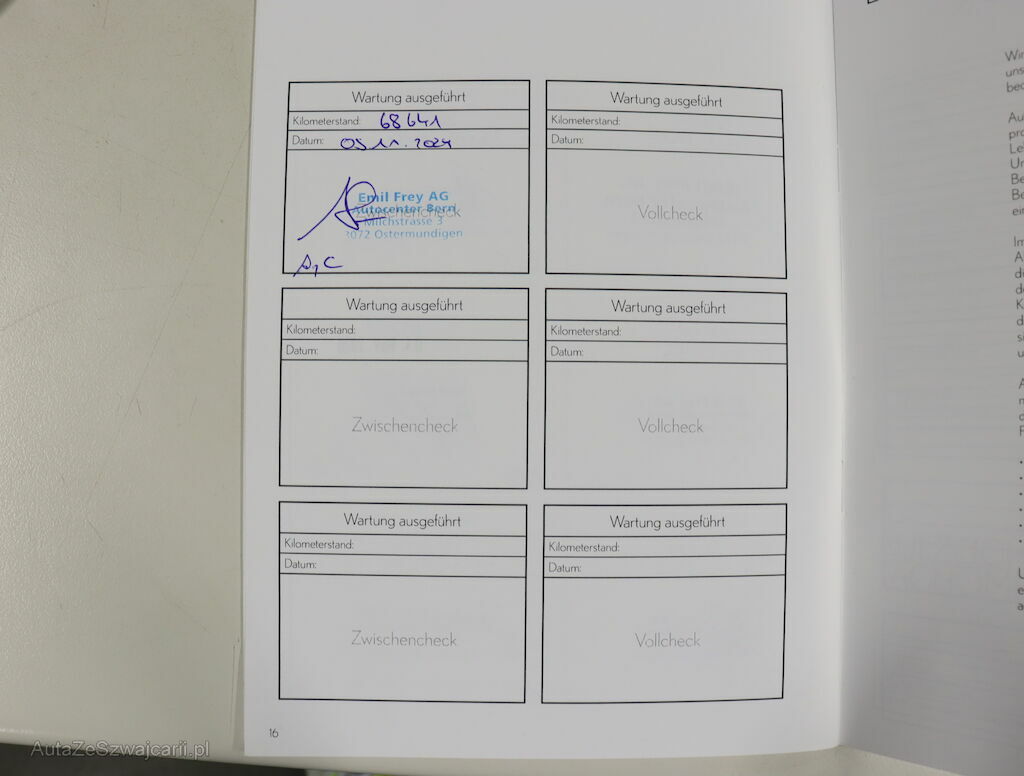 Wartung ausgeführt
Kilometerstand: 68641
Datum: 05.11.2024
Emil Frey AG
Autocenter Bern
Zwischencheck
Milchstrasse 3
3072 Ostermundigen
Wartung ausgeführt
Kilometerstand:
Datum:
Vollcheck
Wartung ausgeführt
Kilometerstand:
Datum:
Zwischencheck
Wartung ausgeführt
Kilometerstand:
Datum:
Vollcheck
Wartung ausgeführt
Kilometerstand:
Datum:
Zwischencheck
Wartung ausgeführt
Kilometerstand:
Datum:
Vollcheck
16
AutaZeSzwajcarii.pl